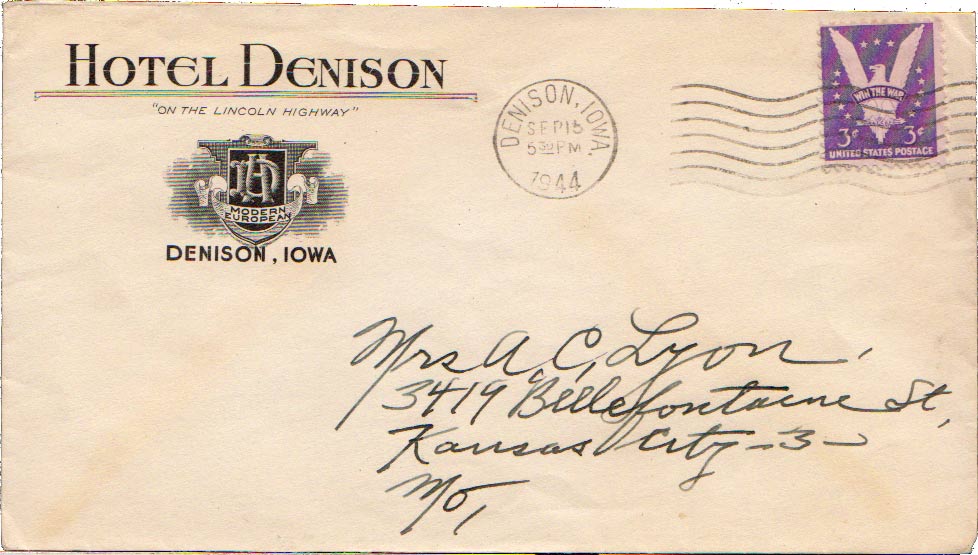 HOTEL DENISON
"ON THE LINCOLN HIGHWAY"
DH
MODERN
EUROPEAN
DENISON, IOWA
DENISON, IOWA.
SEP 15
5 30 PM
1944
WIN THE WAR
3¢ 3¢
UNITED STATES POSTAGE
Mrs A. C. Lyon,
3419 Bellefontaine St,
Kansas City -3-
Mo,